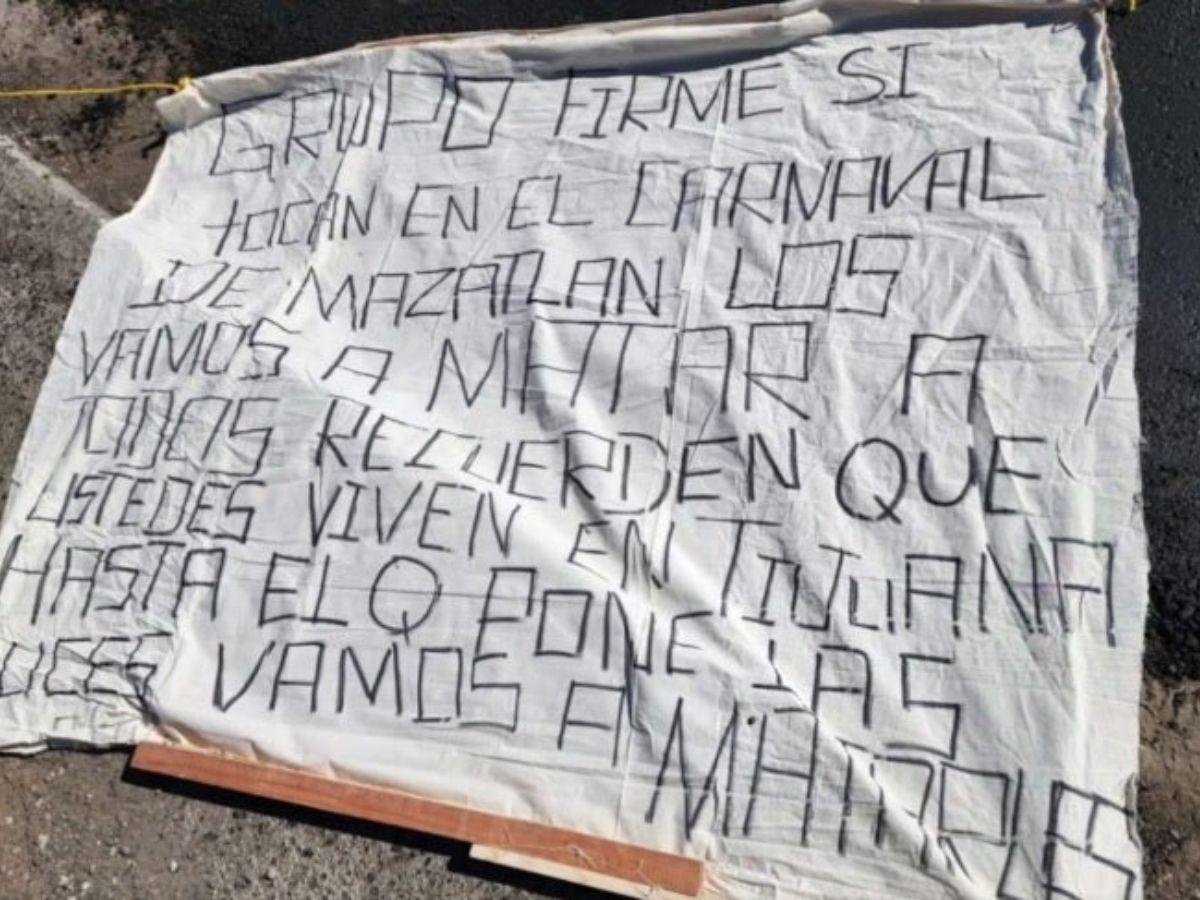 GRUPO FIRME SI
tOCAN EN EL CARNAVAL
DE MAZATLAN LOS
VAMOS A MATAR A
TODOS RECUERDEN QUE
USTEDES VIVEN EN TIJUANA
HASTA EL Q PONE LAS
VAMOS A